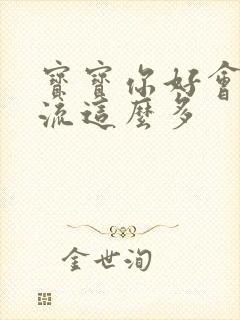 寶寶你好會
流這麼多
金世洵